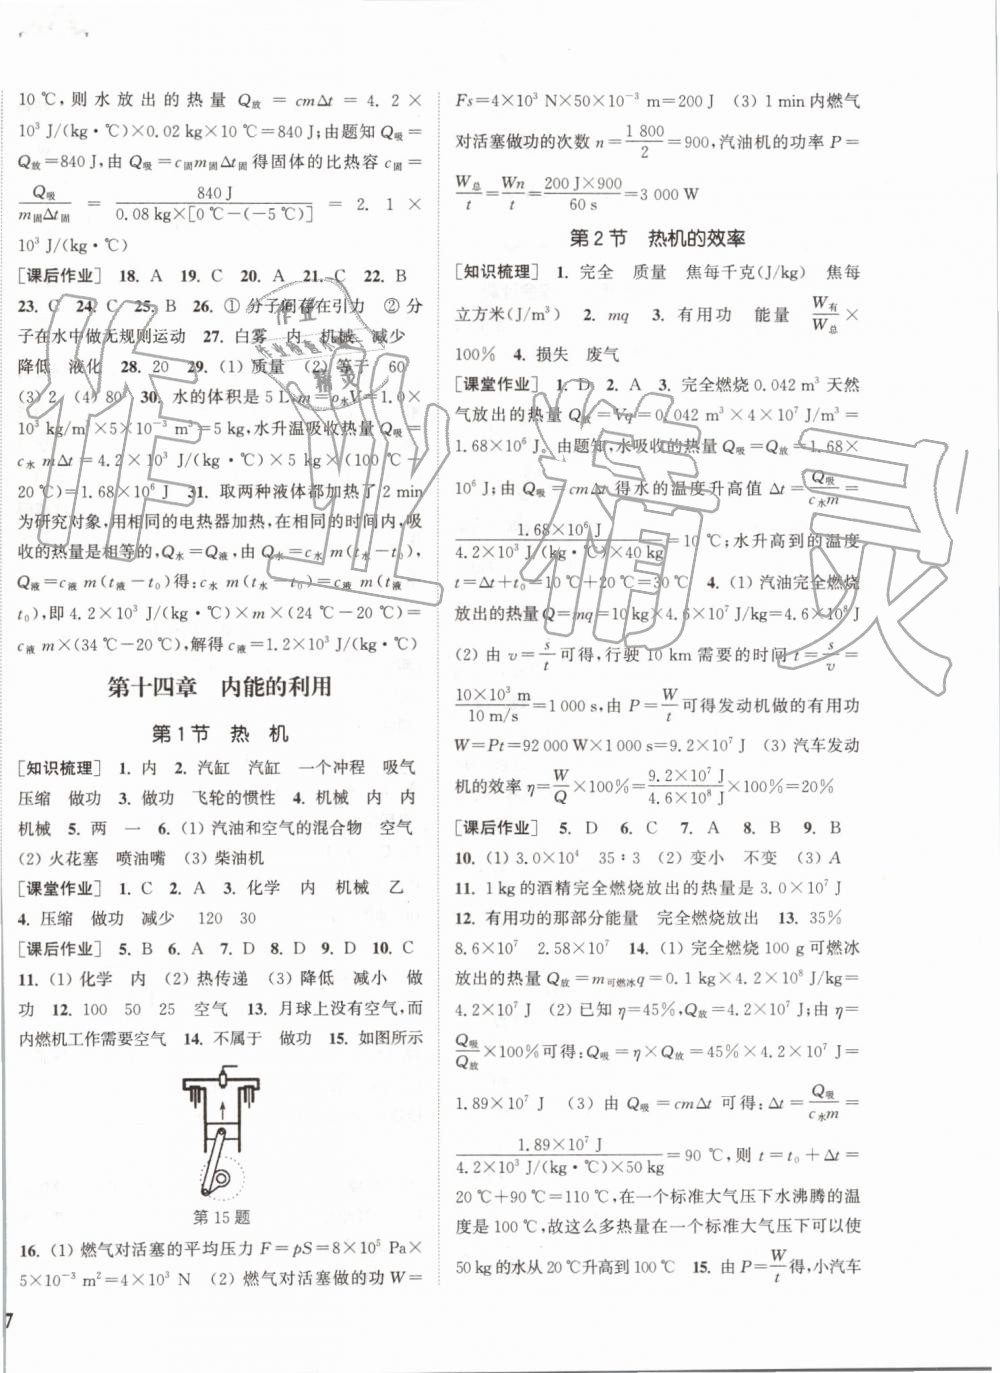 10 ℃,则水放出的热量 Q放 = cmΔt = 4.2×
10³ J/(kg·℃)×0.02 kg×10 ℃=840 J;由题知 Q吸=
Q放=840 J,由 Q吸=c固m固Δt固得固体的比热容 c固=
Q吸/(m固Δt固) = 840 J/(0.08 kg×[0 ℃-(-5 ℃)]) = 2.1×
10³ J/(kg·℃)
[课后作业] 18. A 19. C 20. A 21. C 22. B
23. C 24. C 25. B 26. ① 分子间存在引力 ② 分
子在水中做无规则运动 27. 白雾 内 机械 减少
降低 液化 28. 20 29. (1) 质量 (2) 等于 60
(3) 2 (4) 80 30. 水的体积是 5 L,m=ρ水V=1.0×
10³ kg/m³×5×10⁻³ m³=5 kg,水升温吸收热量 Q吸=
c水 mΔt=4.2×10³ J/(kg·℃)×5 kg×(100 ℃-
20 ℃)=1.68×10⁶ J 31. 取两种液体都加热了 2 min
为研究对象,用相同的电热器加热,在相同的时间内,吸
收的热量是相等的,Q水=Q液,由 Q水=c水 m(t水-t₀),
Q液=c液 m(t液-t₀)得:c水 m(t水-t₀)=c液 m(t液-
t₀),即 4.2×10³ J/(kg·℃)×m×(24 ℃-20 ℃)=
c液 m×(34 ℃-20 ℃),解得 c液=1.2×10³ J/(kg·℃)
第十四章 内能的利用
第1节 热 机
[知识梳理] 1. 内 2. 汽缸 汽缸 一个冲程 吸气
压缩 做功 3. 做功 飞轮的惯性 4. 机械 内 内
机械 5. 两 一 6. (1) 汽油和空气的混合物 空气
(2) 火花塞 喷油嘴 (3) 柴油机
[课堂作业] 1. C 2. A 3. 化学 内 机械 乙
4. 压缩 做功 减少 120 30
[课后作业] 5. B 6. A 7. D 8. D 9. D 10. C
11. (1) 化学 内 (2) 热传递 (3) 降低 减小 做
功 12. 100 50 25 空气 13. 月球上没有空气,而
内燃机工作需要空气 14. 不属于 做功 15. 如图所示
第15题
16. (1) 燃气对活塞的平均压力 F=pS=8×10⁵ Pa×
5×10⁻³ m²=4×10³ N (2) 燃气对活塞做的功 W=
7
Fs=4×10³ N×50×10⁻³ m=200 J (3) 1 min 内燃气
对活塞做功的次数 n=1 800/2=900,汽油机的功率 P=
W总/t=Wn/t=200 J×900/60 s=3 000 W
第2节 热机的效率
[知识梳理] 1. 完全 质量 焦每千克(J/kg) 焦每
立方米(J/m³) 2. mq 3. 有用功 能量 W有/W总×
100% 4. 损失 废气
[课堂作业] 1. D 2. A 3. 完全燃烧 0.042 m³ 天然
气放出的热量 Q放=Vq=0.042 m³×4×10⁷ J/m³=
1.68×10⁶ J。由题知,水吸收的热量 Q吸=Q放=1.68×
10⁶ J;由 Q吸=cmΔt 得水的温度升高值 Δt=Q吸/(c水m)=
1.68×10⁶ J/(4.2×10³ J/(kg·℃)×40 kg)=10 ℃;水升高到的温度
t=Δt+t₀=10 ℃+20 ℃=30 ℃ 4. (1) 汽油完全燃烧
放出的热量 Q=mq=10 kg×4.6×10⁷ J/kg=4.6×10⁸ J
(2) 由 v=s/t可得,行驶 10 km 需要的时间 t=s/v=
10×10³ m/10 m/s=1 000 s,由 P=W/t可得发动机做的有用功
W=Pt=92 000 W×1 000 s=9.2×10⁷ J (3) 汽车发动
机的效率 η=W/Q×100%=9.2×10⁷ J/4.6×10⁸ J×100%=20%
[课后作业] 5. D 6. C 7. A 8. B 9. B
10. (1) 3.0×10⁴ 35∶3 (2) 变小 不变 (3) A
11. 1 kg的酒精完全燃烧放出的热量是 3.0×10⁷ J
12. 有用功的那部分能量 完全燃烧放出 13. 35%
8.6×10⁷ 2.58×10⁷ 14. (1) 完全燃烧 100 g 可燃冰
放出的热量 Q放=m可燃冰q=0.1 kg×4.2×10⁸ J/kg=
4.2×10⁷ J (2) 已知 η=45%,Q放=4.2×10⁷ J;由 η=
Q吸/Q放×100%可得:Q吸=η×Q放=45%×4.2×10⁷ J=
1.89×10⁷ J (3) 由 Q吸=cmΔt 可得:Δt=Q吸/(c水m)=
1.89×10⁷ J/(4.2×10³ J/(kg·℃)×50 kg)=90 ℃,则 t=t₀+Δt=
20 ℃+90 ℃=110 ℃,在一个标准大气压下水沸腾的温
度是 100 ℃,故这么多热量在一个标准大气压下可以使
50 kg的水从 20 ℃升高到 100 ℃ 15. 由 P=W/t得,小汽车
作业精灵